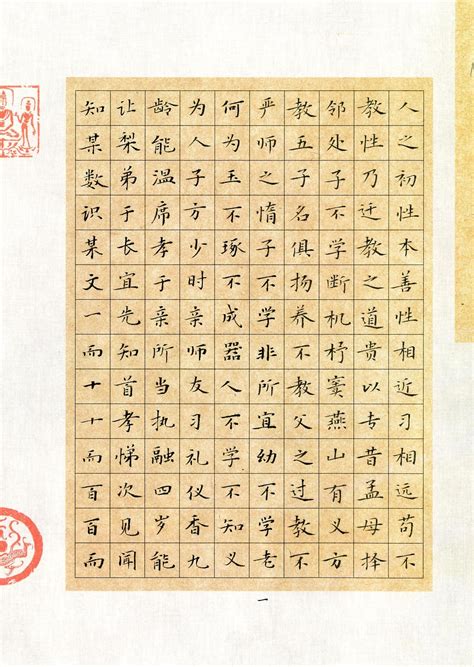 人之初性本善性相近习相远苟不
教性乃迁教之道贵以专昔孟母择
邻处子不学断机杼窦燕山有义方
教五子名俱扬养不教父之过教不
严师之惰子不学非所宜幼不学老
何为玉不琢不成器人不学不知义
为人子方少时亲师友习礼仪香九
龄能温席孝于亲所当执融四岁能
让梨弟于长宜先知首孝悌次见闻
知某数识某文一而十十而百百而
一